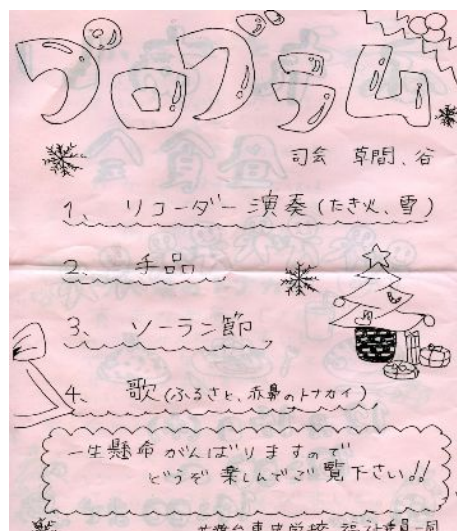 プログラム
司会 草間、谷
1、リコーダー演奏(たき火、雪)
2、手品
3、ソーラン節
4、歌(ふるさと、赤鼻のトナカイ)
一生懸命がんばりますので
どうぞ楽しんでご覧下さい!!